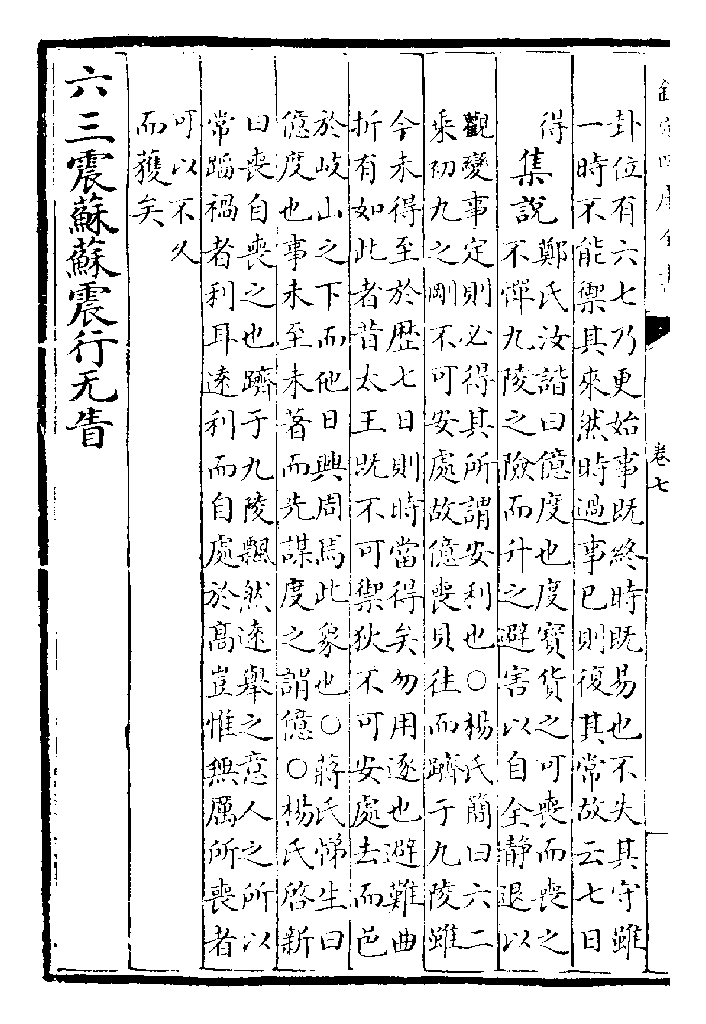 卷七
卦位有六七乃更始事既終時既易也不失其守雖
一時不能禦其來然時過事已則復其常故云七日
得
集說
鄭氏汝諧曰億度也度寳貨之可喪而喪之
不憚九陵之險而升之避害以自全靜退以
觀變事定則必得其所謂安利也○楊氏簡曰六二
乗初九之剛不可安處故億喪貝往而躋于九陵雖
今未得至於歴七日則時當得矣勿用逐也避難曲
折有如此者昔太王既不可禦狄不可安處去而邑
於岐山之下而他日興周焉此象也○蔣氏悌生曰
億度也事未至未著而先謀度之謂億○楊氏啓新
曰喪自喪之也躋于九陵飄然逺舉之意人之所以
常蹈禍者利耳逺利而自處於髙豈惟無厲所喪者
可以不久
而獲矣
六三震蘇蘇震行无眚